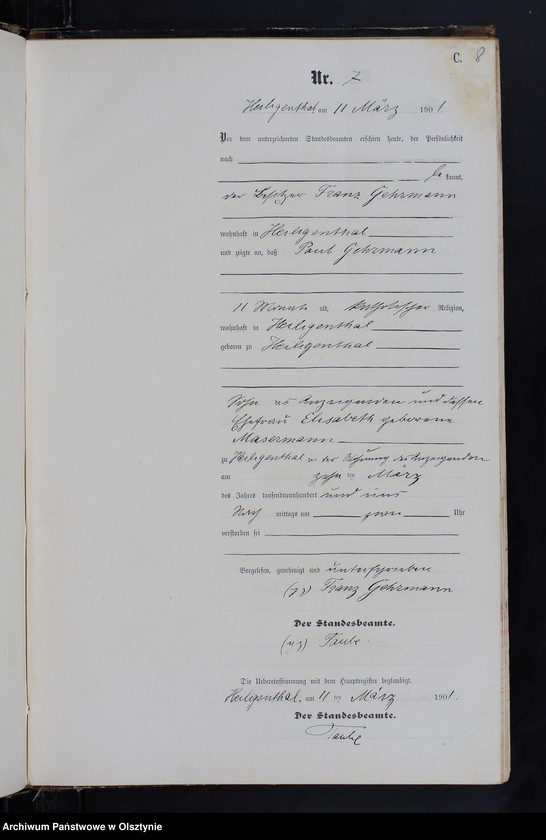 C. 8
Nr. 7
Heiligenthal am 11 März 1901
Vor dem unterzeichneten Standesbeamten erschien heute, der Persönlichkeit
nach
be kannt,
der Besitzer Franz Gehrmann
wohnhaft in Heiligenthal
und zeigte an, daß Paul Gehrmann
11 Monate alt, katholischer Religion,
wohnhaft in Heiligenthal
geboren zu Heiligenthal
Sohn des Anzeigenden und dessen
Ehefrau Elisabeth geborene
Masermann
zu Heiligenthal in der Wohnung des Anzeigenden
am zehn ten März
des Jahres tausendneunhundert und eins
Nach mittags um zwei Uhr
verstorben sei
Vorgelesen, genehmigt und unterschrieben
Franz Gehrmann
Der Standesbeamte.
Taube
Die Uebereinstimmung mit dem Hauptregister beglaubigt.
Heiligenthal. am 11 ten März 1901.
Der Standesbeamte.
Taube
Archiwum Państwowe w Olsztynie